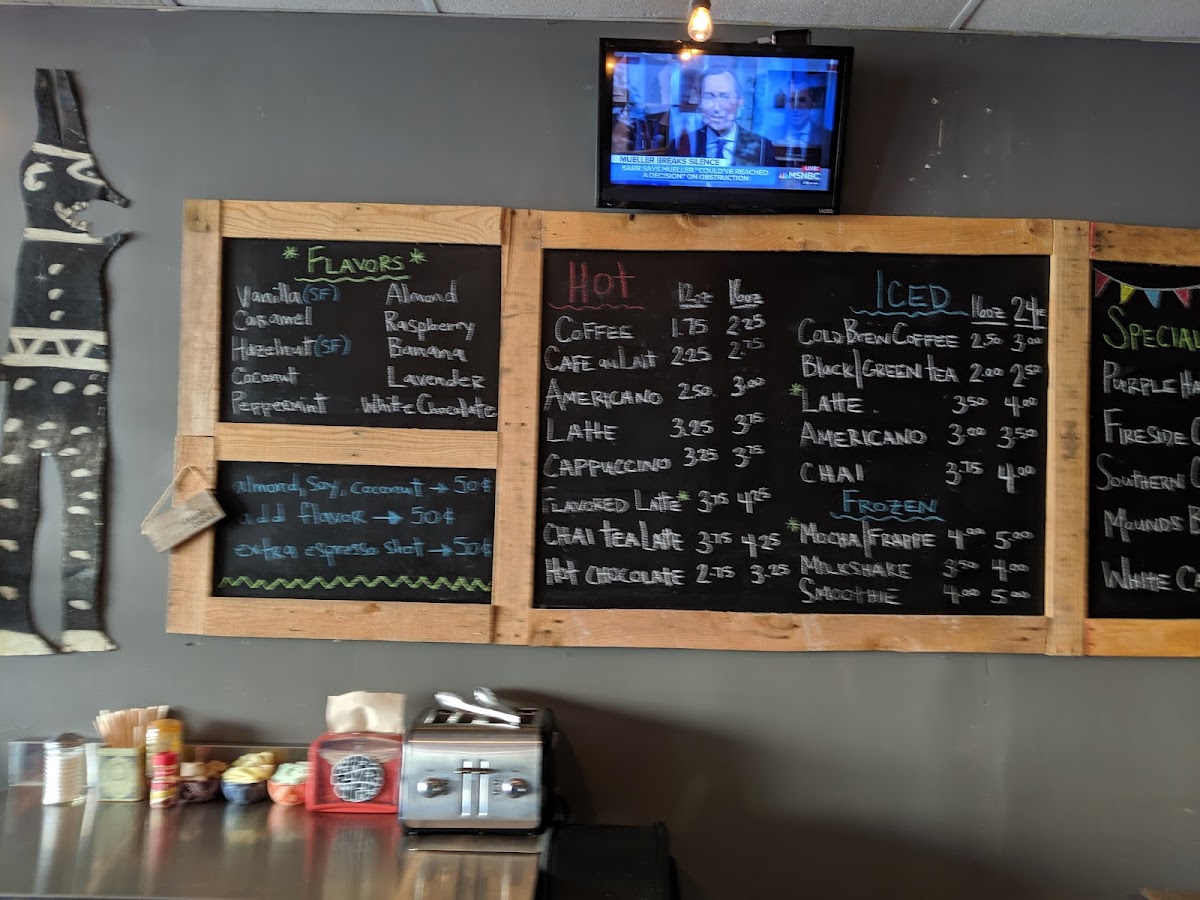 MUELLER BREAKS SILENCE
BARR SAYS MUELLER "COULD'VE REACHED
A DECISION" ON OBSTRUCTION
LIVE
MSNBC
VIZIO
* FLAVORS *
Vanilla (SF) Almond
Caramel Raspberry
Hazelnut (SF) Banana
Coconut Lavender
Peppermint White Chocolate
almond, soy, coconut → 50¢
add flavor → 50¢
extra espresso shot → 50¢
HOT 12oz 16oz
COFFEE 1.75 2.25
CAFE au LAIT 2.25 2.75
AMERICANO 2.50 3.00
LATTE 3.25 3.75
CAPPUCCINO 3.25 3.75
FLAVORED LATTE* 3.75 4.25
CHAI TEA LATTE 3.75 4.25
HOT CHOCOLATE 2.75 3.25
ICED 16oz 24oz
COLD BREW COFFEE 2.50 3.00
BLACK/GREEN TEA 2.00 2.50
*LATTE 3.50 4.00
AMERICANO 3.00 3.50
CHAI 3.75 4.00
FROZEN
*MOCHA/FRAPPE 4.00 5.00
MILKSHAKE 3.50 4.00
SMOOTHIE 4.00 5.00
SPECIAL
PURPLE HA
FIRESIDE C
SOUTHERN C
MOUNDS B
WHITE C